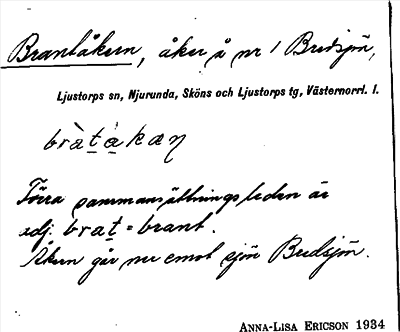 Brantåkern, åker å nr 1 Bredsjön,
Ljustorps sn, Njurunda, Sköns och Ljustorps tg, Västernorrl. l.
bràt̲à̲kaɳ
Förra sammansättningsleden är
adj. brat̲ = brant.
Åkern går ner emot sjön Bredsjön.
ANNA-LISA ERICSON 1934